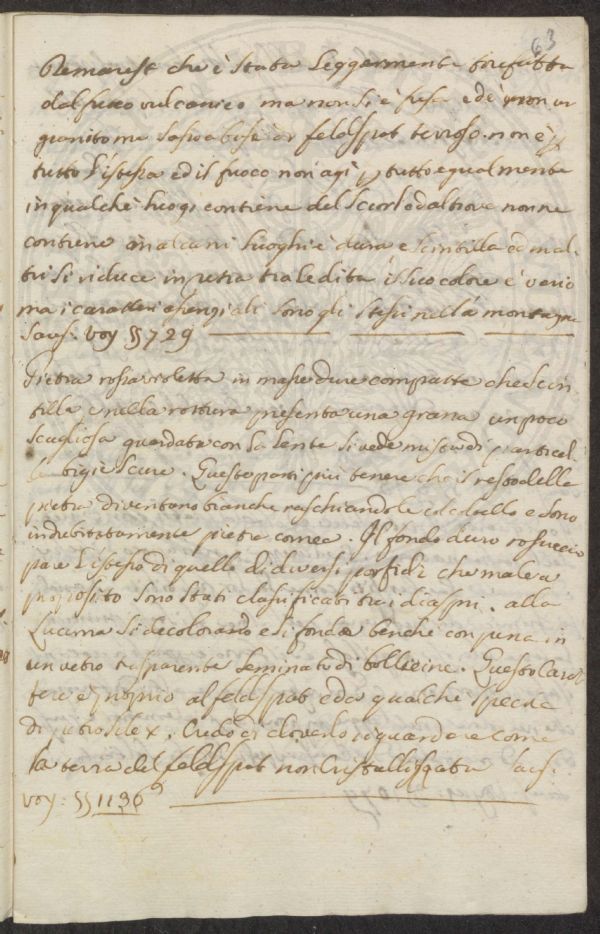 63
Remarest che è stata Leggermente torefatta
dal fuoco vulcanico ma non si è fusa ed è non un
granito ma Sasso a base di feldspat terroso. non è
tutto l'istessa ed il fuoco non agì p tutto egualmente
in qualche luogi contiene del Scorlo ed altrove non ne
contiene in alcuni luoghi è dura e Scintilla ed in al-
tri si riduce in petra tra le dita il suo colore è vario
ma i caratteri esenziali sono gli Stessi nella montagne
Saus: voy §§ 729
Pietra rossa violetta in masse dure compatte che Scin
tilla e nella rottura presenta una grana un poco
Scagliosa guardata con la Lente si vede mista di particel-
le bigie Scure. Queste parti più tenere che il resto della
pietra diventano bianche raschiandole col coltello e sono
indubitatamente pietra cornea. Il fondo duro rossiccio
pare l'istesso di quello di diversi porfidi che male a
proposito sono stati classificati tra i diaspri. alla
Lucerna si decolorano e si fonde benche con pena in
un vetro trasparente seminato di bollicine. Questo Carat
tere è proprio al feldspat ed a qualche specie
di petrosilex. Credo di doverlo riguardare come
la terra del feldspat non Cristallisgata Saus:
voy: §§ 1136